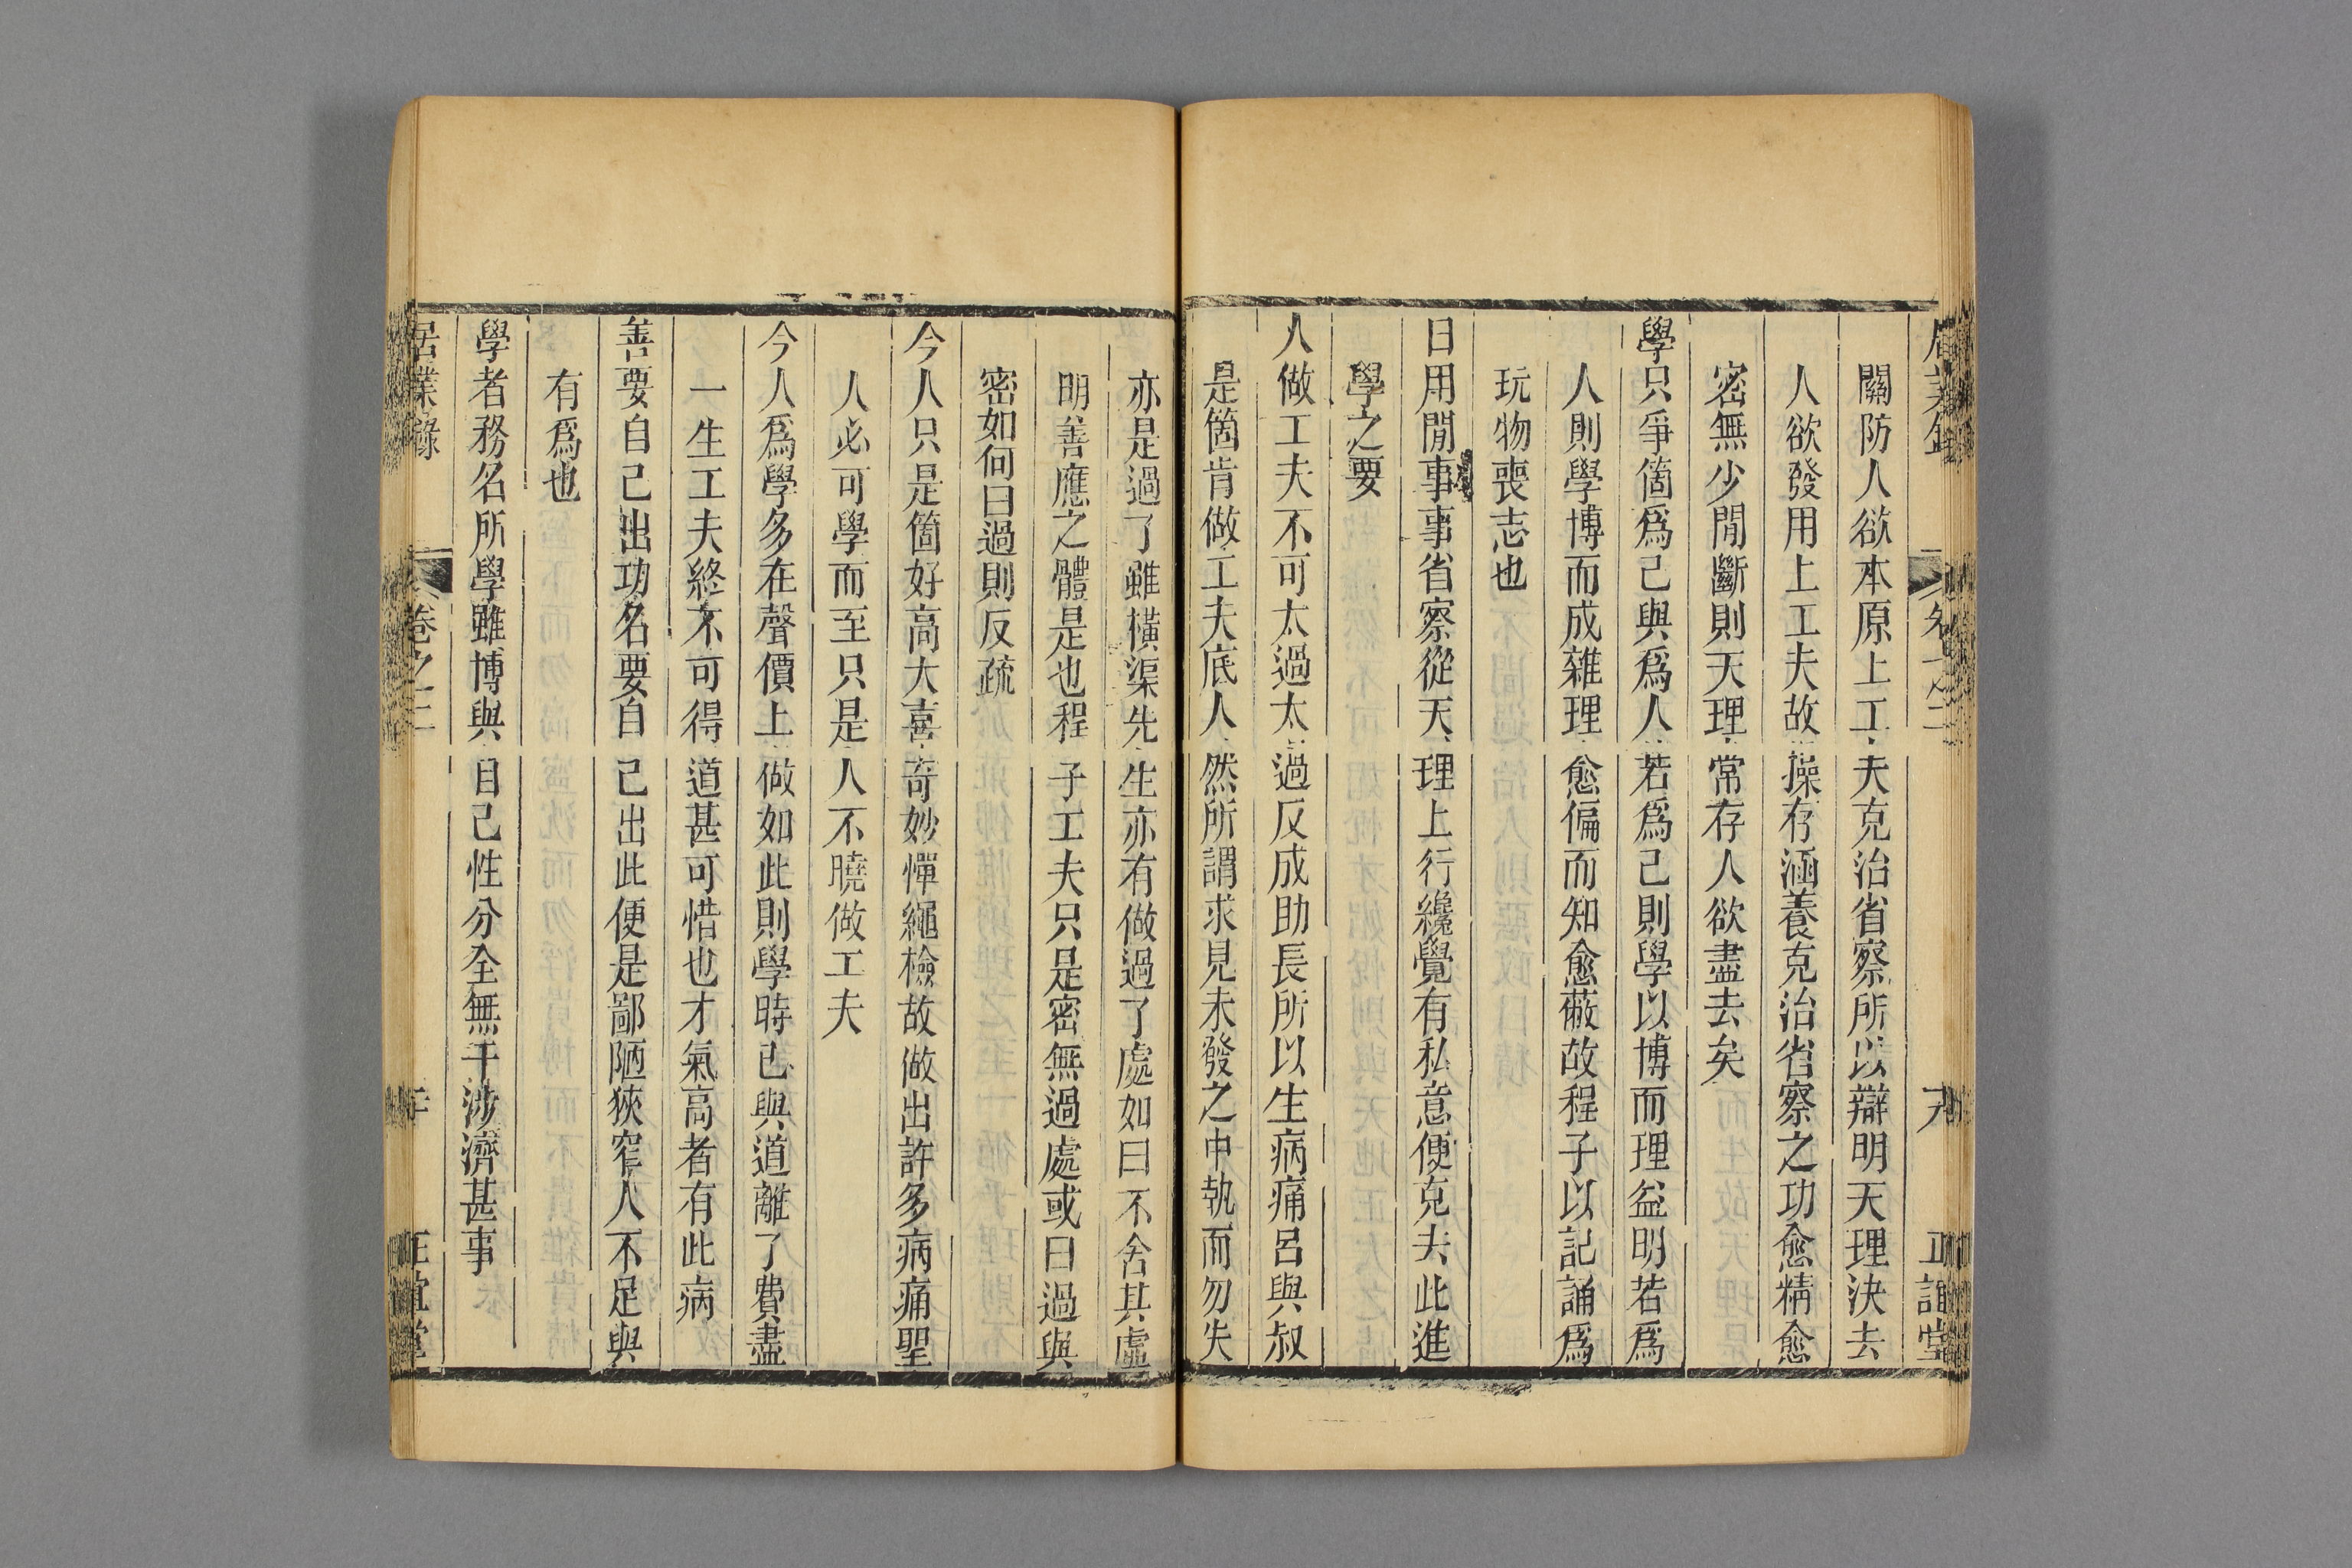 居業錄 卷之二 十九 正誼堂
關防人欲本原上工夫克治省察所以辯明天理決去
人欲發用上工夫故操存涵養克治省察之功愈精愈
密無少閒斷則天理常存人欲盡去矣
學只爭箇爲己與爲人若爲己則學以博而理益明若爲
人則學博而成雜理愈偏而知愈蔽故程子以記誦爲
玩物喪志也
日用閒事事省察從天理上行纔覺有私意便克去此進
學之要
人做工夫不可太過太過反成助長所以生病痛呂與叔
是箇肯做工夫底人然所謂求見未發之中執而勿失
亦是過了雖橫渠先生亦有做過了處如曰不舍其虛
明善應之體是也程子工夫只是密無過處或曰過與
密如何曰過則反疏
今人只是箇好高大喜奇妙憚繩檢故做出許多病痛聖
人必可學而至只是人不曉做工夫
今人爲學多在聲價上做如此則學時已與道離了費盡
一生工夫終不可得道甚可惜也才氣高者有此病
善要自己出功名要自己出此便是鄙陋狹窄人不足與
有爲也
學者務名所學雖博與自己性分全無干涉濟甚事
居業錄 卷之二 二十 正誼堂